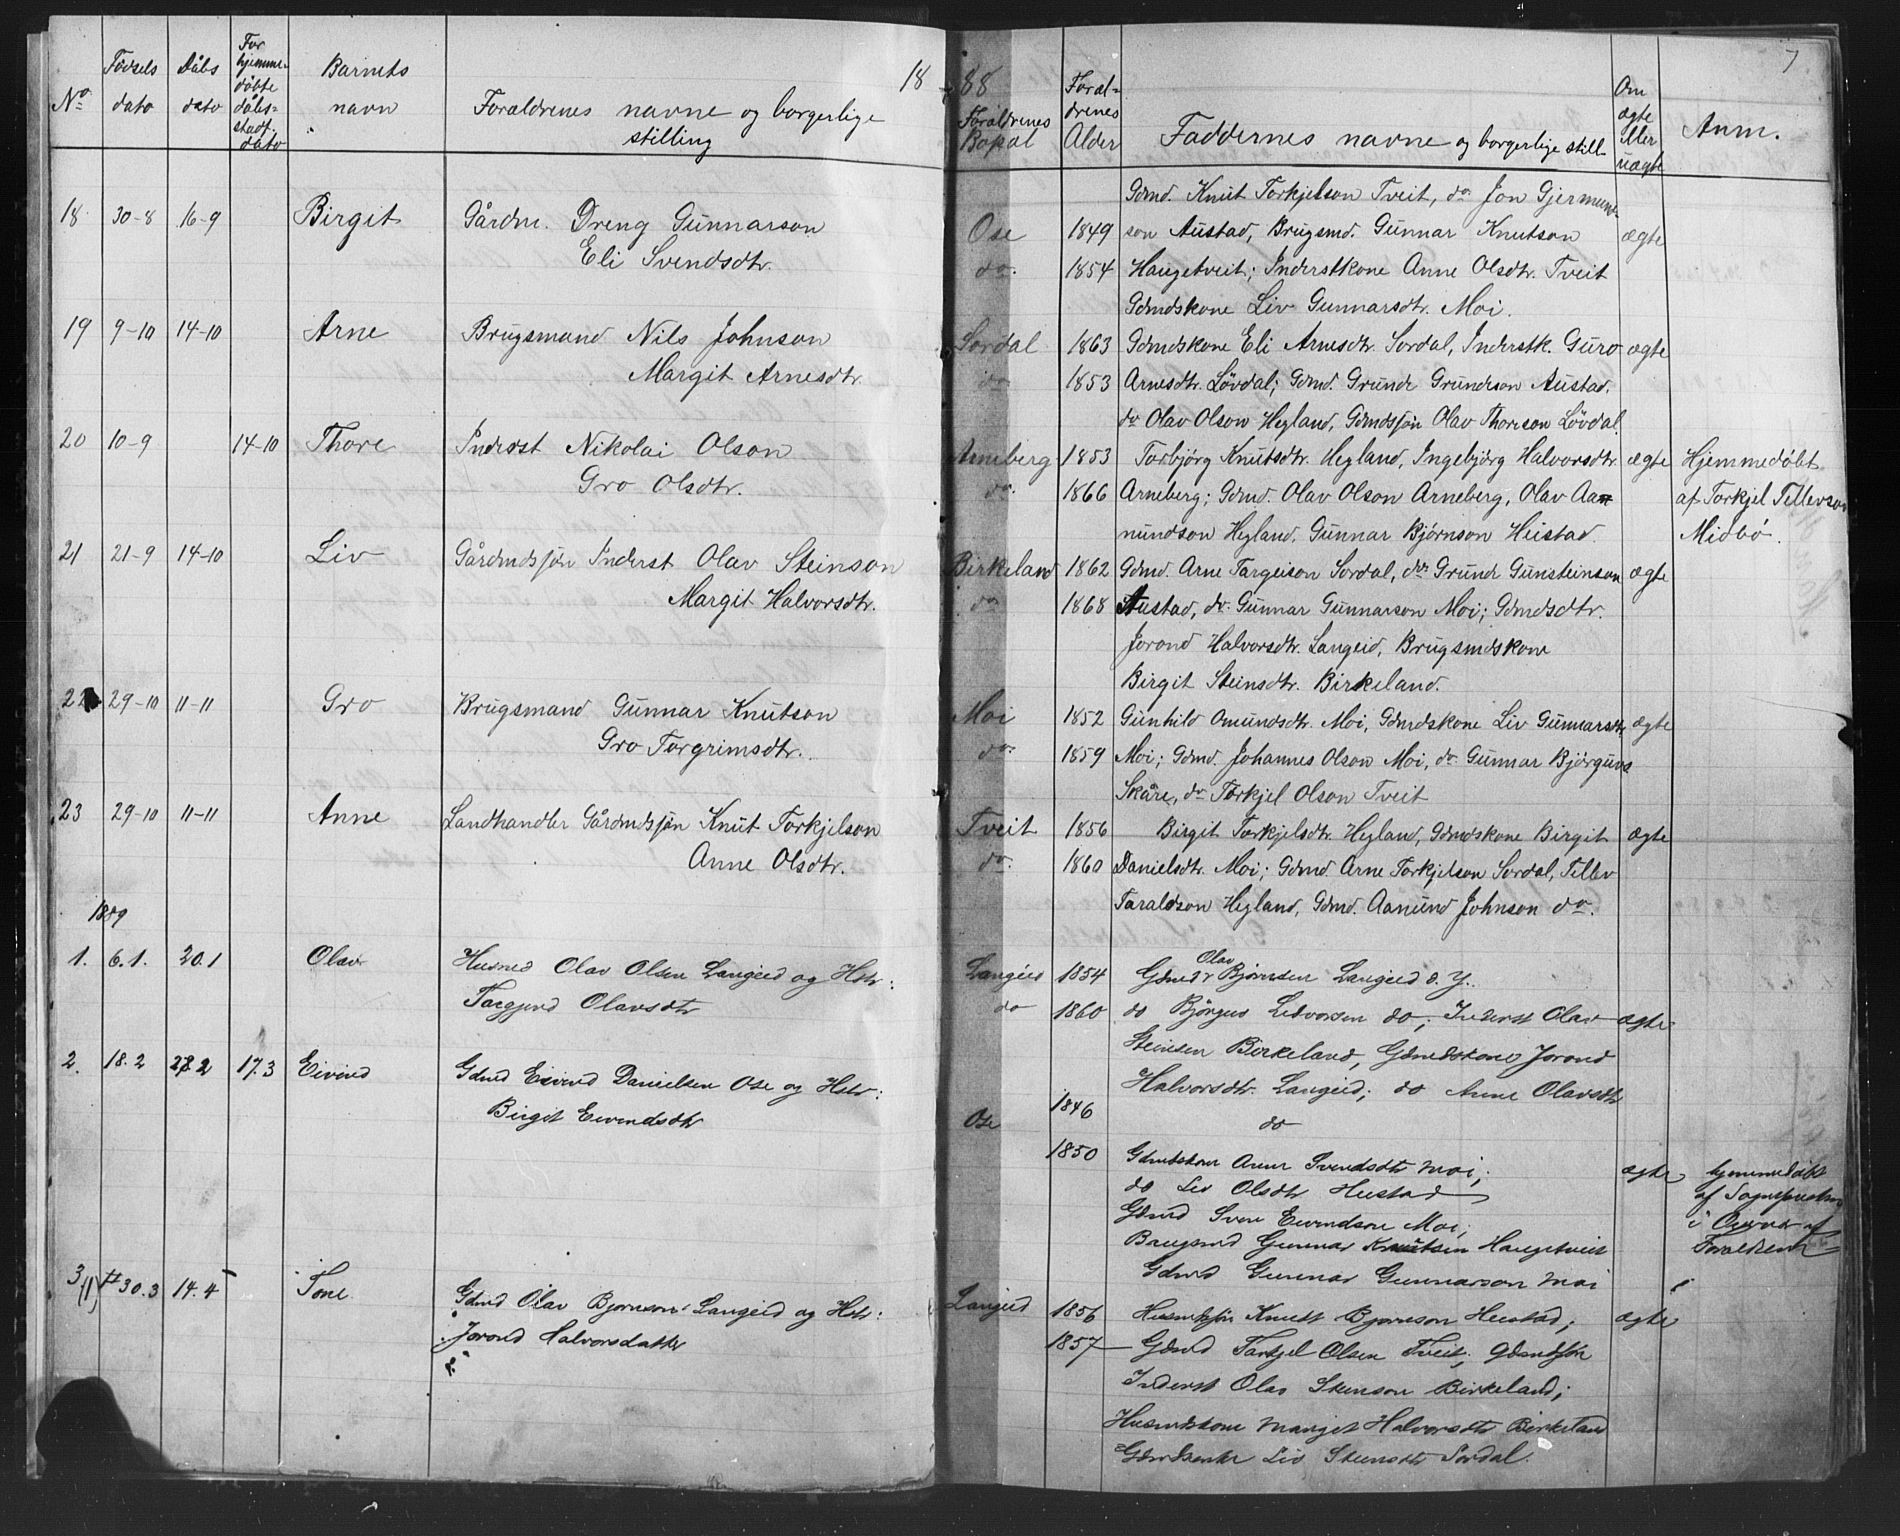 18 88
7
No
Fødsels
dato
Dåbs
dato
For
hjemme-
døbte
dåbs-
stadf.
dato
Barnets
navn
Forældrenes navne og borgerlige
stilling
Forældrenes
Bopæl
Foræl-
drenes
Alder
Faddernes navne og borgerlige still.
Om
ægte
eller
uægte
Anm.
18 30-8 16-9 Birgit Gårdm. Dreng Gunnarson
Eli Svendsdtr.
Ose 1849
do. 1854
Gdmd. Knut Torkjelson Tveit, do. Jon Gjermund-
son Austad, Brugsmd. Gunnar Knutson
Haugetveit; Inderstkone Anne Olsdtr. Tveit
Gdmdskone Liv Gunnarsdtr. Moi.
ægte
19 9-10 14-10 Arne Brugsmand Nils Johnson
Margit Arnesdtr.
Sordal 1863
do 1853
Gdmdskone Eli Arnesdtr. Sordal, Inderstk. Guro
Arnesdtr. Løvdal; Gdmd. Grundr Grundrson Austad.
do Olav Olson Hegland, Gdmdsjøn Olav Thoreson Løvdal.
ægte
20 10-9 14-10 Thore Inderst Nikolai Olson
Gro Olsdtr.
Arneberg 1853
do. 1866
Torbjørg Knutsdtr. Hegland, Ingebjørg Halvorsdtr.
Arneberg; Gdmd. Olav Olson Arneberg, Olav Aa-
nundson Hegland, Gunnar Bjørnson Heistad.
ægte
Hjemmedøbt
af Torkjel Tellevson
Midbø.
21 21-9 14-10 Liv Gårdmdsjøn Inderst Olav Steinson
Margit Halvorsdtr.
Birkeland 1862
do 1868
Gdmd. Arne Targeison Sordal, do. Grundr Gunsteinson
Austad, do. Gunnar Gunnarson Moi; Gdmdsdtr.
Jorond Halvorsdtr. Langeid, Brugsmdskone
Birgit Steinsdtr. Birkeland.
ægte
22 29-10 11-11 Gro Brugsmand Gunnar Knutson
Gro Torgrimsdtr.
Moi 1852
do. 1859
Gunhild Omundsdtr. Moi, Gdmdskone Liv Gunnarsdtr.
Moi; Gdmd. Johannes Olson Moi, do. Gunnar Bjørguvs.
Skåre, do. Torkjel Olson Tveit
ægte
23 29-10 11-11 Anne Landhandler Gårdmdsjøn Knut Torkjelson
Anne Olsdtr.
Tveit 1856
do. 1860
Birgit Torkjelsdtr. Hegland, Gdmdskone Birgit
Danielsdtr. Moi; Gdmd. Arne Torkjelson Sordal, Tellev
Taraldson Hegland, Gdmd. Aanund Johnson do.
ægte
1889
1. 6.1. 20.1 Olav Husmd Olav Olsen Langeid og Hstr:
Targjerd Olavsdtr
Langeid 1854
do 1860
Olav
Gdmd Bjørnsen Langeid d. Y.
do Bjørgus Ledvorsen do; Inderst Olav
Steinsen Birkeland, Gdmdskone Jorond
Halvorsdtr. Langeid; do Anne Olavsdtr
do
ægte
2. 18.2 2 17.3 Eivind Gdmd Eivind Danielsen Ose og Hstr:
Birgit Eivendsdtr
Ose 1846
1850
Gdmdskone Anne Svendsdtr Moi;
do Liv Olsdtr Heistad
Gdmd Svein Eivendson Moi,
Brugsmd Gunnar Knutsen Haugetveit
Gdmd Gunnar Gunnarson Moi
ægte
hjemmedøbt
af Sognepresten
i af
Forældrene
3 (1) 30.3 14.4 Tone Gdmd Olav Bjørnson Langeid og Hstr:
Jorond Halvorsdatter
Langeid 1856
1857
Husmdsjøn Knut Bjørnson Heistad;
Gdmd Tarkjel Olsen Tveit, Gdmdsjøn
Inderst Olav Steinson Birkeland;
Husmdskone Margit Halvorsdtr Birkeland
Gdmdsenke Liv Steinsdtr Sordal.
ægte